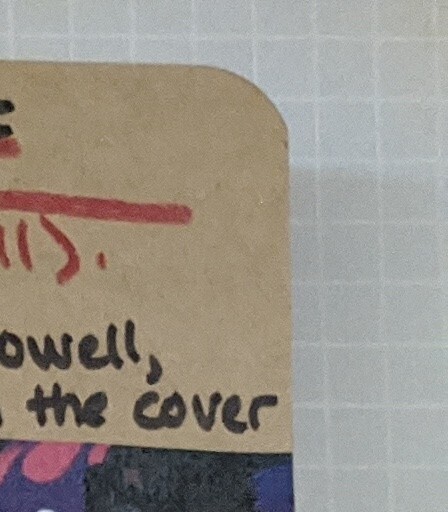 ll).
owell,
the cover